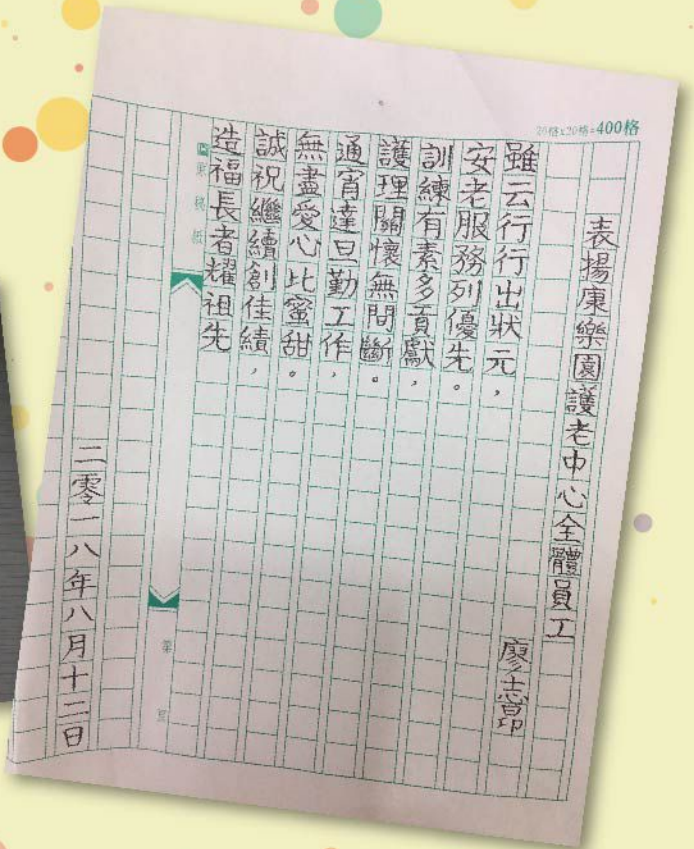 20格x20格=400格
表揚康樂園護老中心全體員工
廖志昂
雖云行行出狀元，
安老服務列優先。
訓練有素多貢獻，
護理關懷無間斷。
通宵達旦勤工作，
無盡愛心比蜜甜。
誠祝繼續創佳績，
造福長者耀祖先
原稿紙
第
頁
二零一八年八月十二日